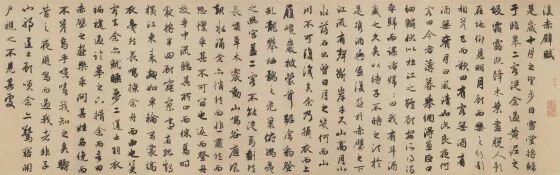 後赤壁賦
是歲十月之望步自雪堂將歸
于臨皋二客從余過黃泥之
坂霜露既降木葉盡脫人影
在地仰見明月顧而樂之行歌
相答已而嘆曰有客無酒有
酒無肴月白風清如此良夜何
客曰今者薄暮舉網得魚巨口
細鱗狀似松江之鱸顧安所得酒
乎歸而謀諸婦婦曰我有斗酒
藏之久矣以待子不時之須於
是攜酒與魚復遊於赤壁之下
江流有聲斷岸千尺山高月小
水落石出曾日月之幾何而江山
不可復識矣余乃攝衣而上
履巉巖披蒙茸踞虎豹登
虬龍攀棲鶻之危巢俯馮夷
之幽宮蓋二客不能從焉劃然
長嘯草木震動山鳴谷應風
起水涌余亦悄然而悲肅然而
恐凜乎其不可留也返而登舟
放乎中流聽其所止而休焉時
夜將半四顧寂寥適有孤鶴
橫江東來翅如車輪玄裳縞
衣戛然長鳴掠余舟而西也須臾
客去余亦就睡夢一道士羽衣
蹁躚過臨皋之下揖余而言曰
赤壁之遊樂乎問其姓名俛而
不答嗚呼噫嘻我知之矣疇
昔之夜飛鳴而過我者非子
也耶道士顧笑余亦驚悟開
戶視之不見其處